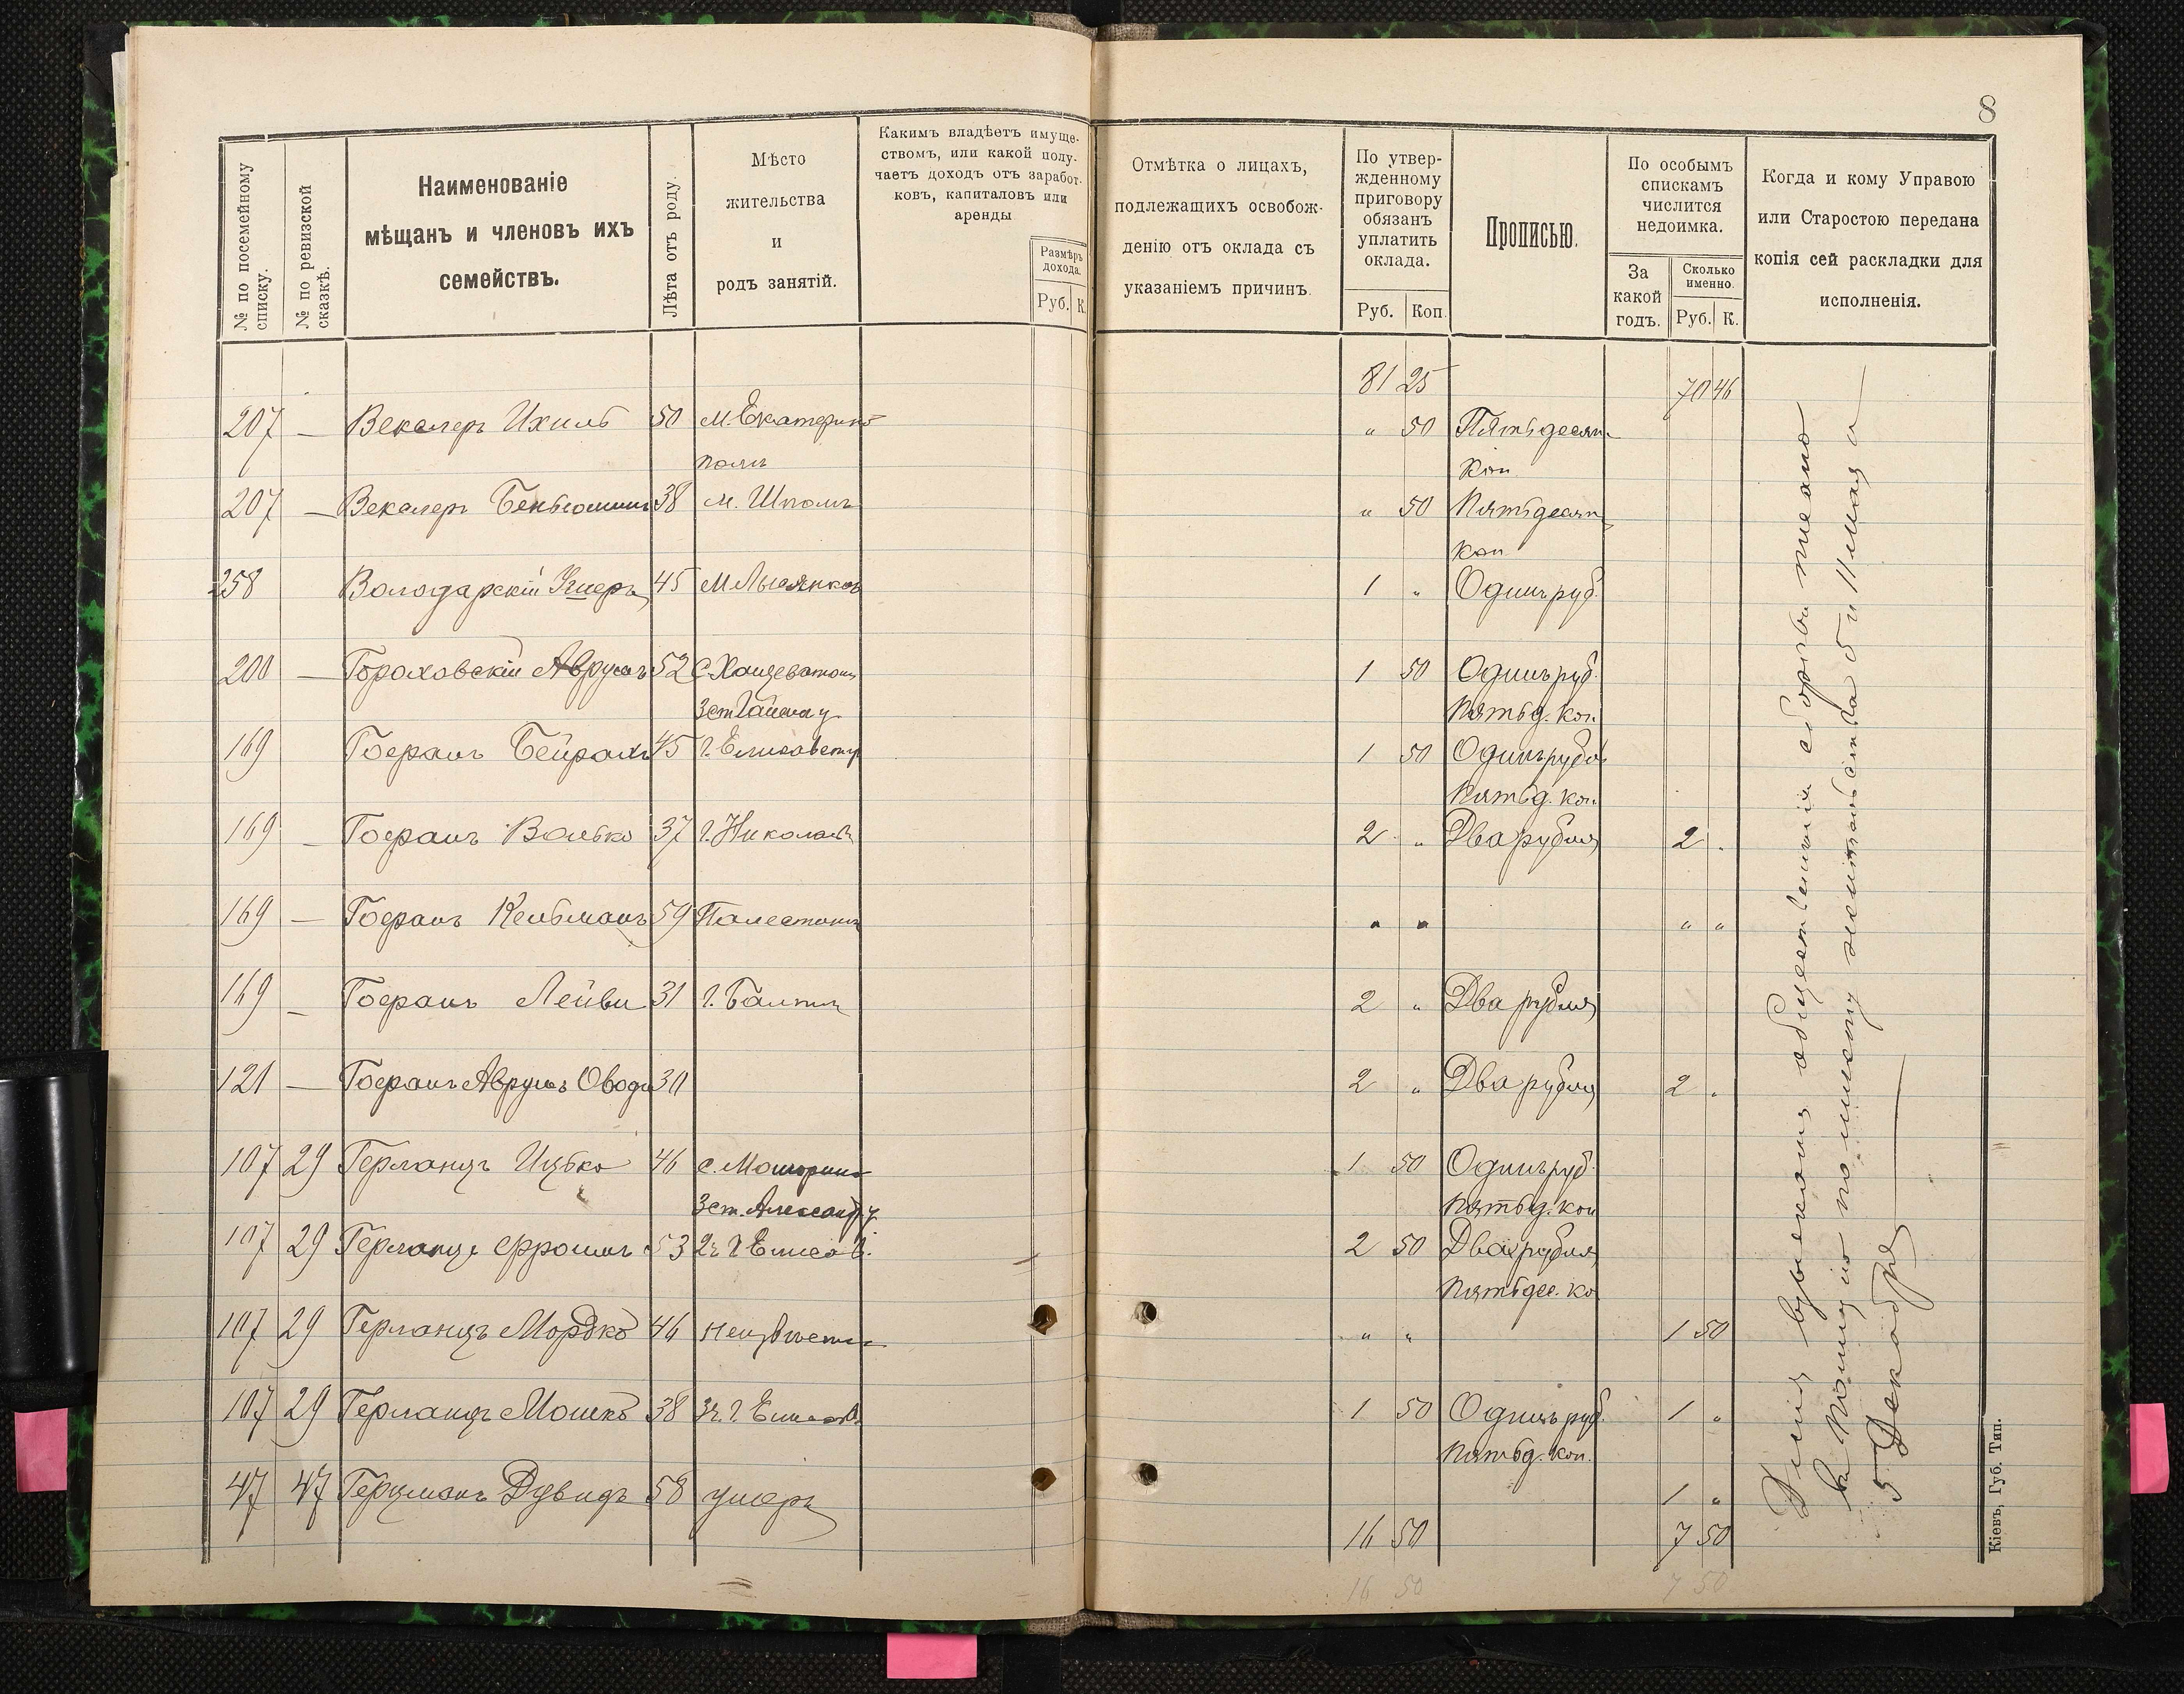 8
№ по посемейному списку.
№ по ревизской сказкѣ.
Наименованіе
мѣщанъ и членовъ ихъ
семействъ.
Лѣта отъ роду.
Мѣсто
жительства
и
родъ занятій.
Какимъ владѣетъ имуще-
ствомъ, или какой полу-
чаетъ доходъ отъ заработ-
ковъ, капиталовъ или
аренды
Размѣръ
дохода.
Руб. К.
Отмѣтка о лицахъ,
подлежащихъ освобож-
денію отъ оклада съ
указаніемъ причинъ.
По утвер-
жденному
приговору
обязанъ
уплатить
оклада.
Руб. Коп.
Прописью.
По особымъ
спискамъ
числится
недоимка.
За
какой
годъ.
Сколько
именно.
Руб. К.
Когда и кому Управою
или Старостою передана
копія сей раскладки для
исполненія.
81 25 70 46
207 — Векслеръ Ихиль 50 м. Екатерино " 50 Пятьдесят
поль Коп
207 — Векслеръ Беньюминъ 38 м. Шполъ " 50 Пятьдесят
Коп
258 Володарскій Ушеръ 45 м Лысянкъ 1 " Одинъ руб.
200 — Гораховскій Аврумъ 52 с. Хащеватой 1 50 Одинъ руб.
Пятьд. Коп.
169 Гофманъ 45 г. Елисаветгр 1 50 Одинъ рубль
Пятьд. коп.
169 — Волько 37 г. Николаев 2 " Два рубля 2 "
169 — Кельманъ 59 Палестинъ " " " "
169 — Лейви 31 г. Балтъ 2 " Два рубля
121 — Аврумъ Овади 30 2 " Два рубля 2 "
107 29 Герланцъ Ицько 46 с. Мошорино 1 50 Одинъ руб.
Александ. у. Пятьд. коп
107 29 Герланцъ Фроимъ 53 2 г. г. Елисав. 2 50 Два рубля
Пятьдес. ко
107 29 Герланцъ Мордко 46 неизвѣстно " " 1 50
107 29 Герланцъ Мошко 38 г. Елисав. 1 50 Одинъ руб. 1 "
Пятьд. коп.
47 47 Герцманъ Дувидъ 58 умеръ 1 "
16 50 7 50
16 50 7 50
общественнаго сбора
5 Декабря
Кіевъ, Губ. Тип.